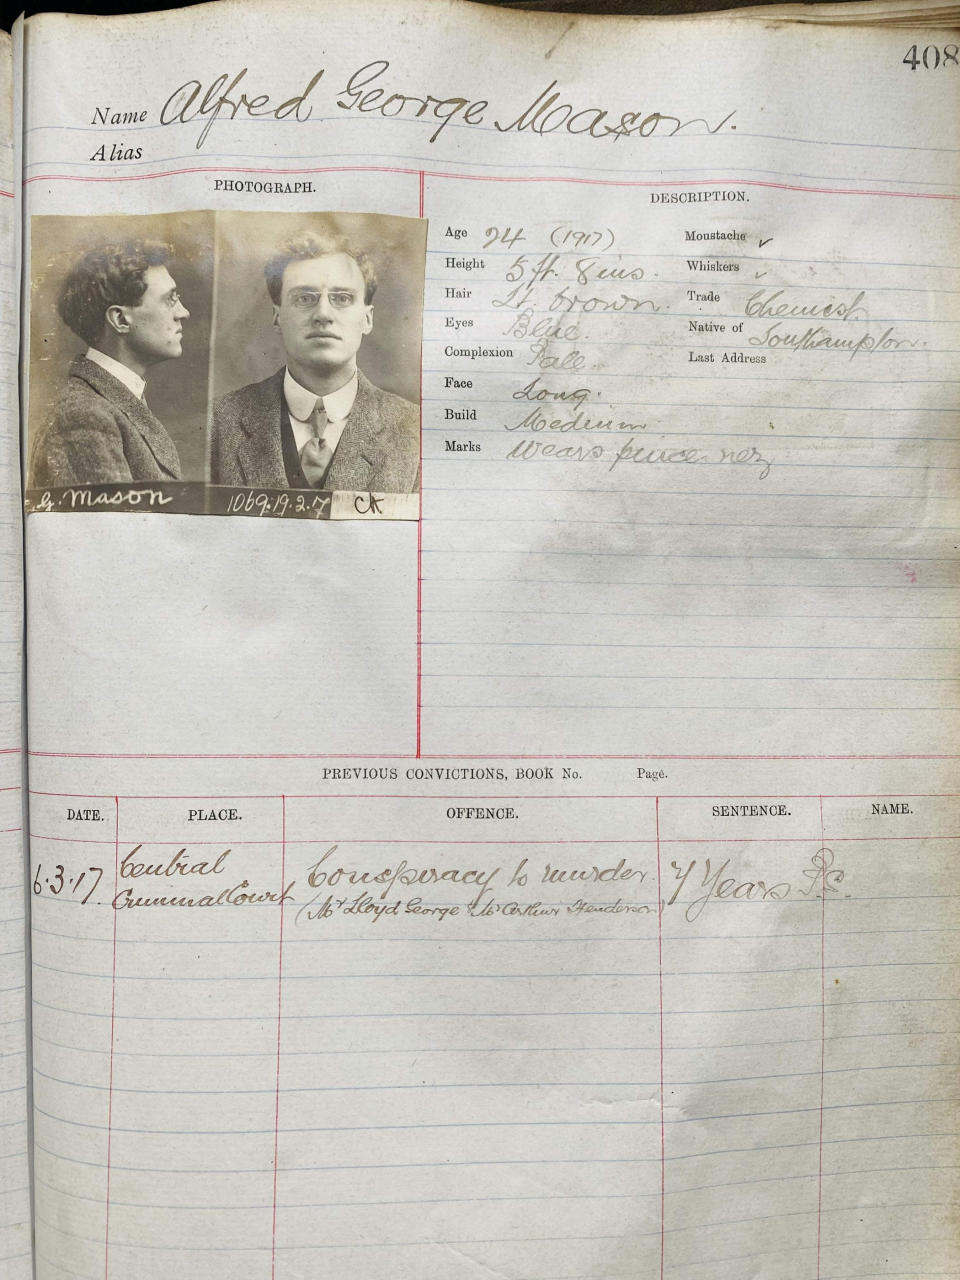 408
Name Alfred George Mason.
Alias
PHOTOGRAPH.
DESCRIPTION.
Age 24 (1917)
Height 5 ft. 8 ins.
Hair Lt. brown.
Eyes Blue.
Complexion Pale.
Face Long.
Build Medium
Marks Wears pince nez
Moustache ✓
Whiskers ✓
Trade Chemist.
Native of Southampton.
Last Address
G. Mason 1069.19.2.7 CK
PREVIOUS CONVICTIONS, BOOK No. Page.
DATE. PLACE. OFFENCE. SENTENCE. NAME.
6.3.17 Central Conspiracy to murder. 7 Years P.S.
Criminal Court (Mr Lloyd George & Mr Arthur Henderson)